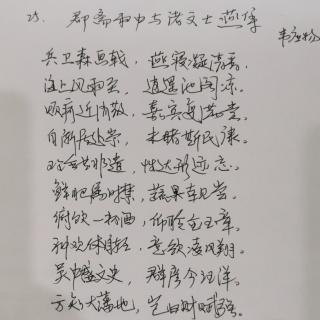 25. 郡斋雨中与诸文士燕集
韦应物
兵卫森画戟，燕寝凝清香。
海上风雨至，逍遥池阁凉。
烦疴近消散，嘉宾复满堂。
自惭居处崇，未睹斯民康。
理会是非遣，性达形迹忘。
鲜肥属时禁，蔬果幸见尝。
俯饮一杯酒，仰聆金玉章。
神欢体自轻，意欲凌风翔。
吴中盛文史，群彦今汪洋。
方知大藩地，岂曰财赋强。